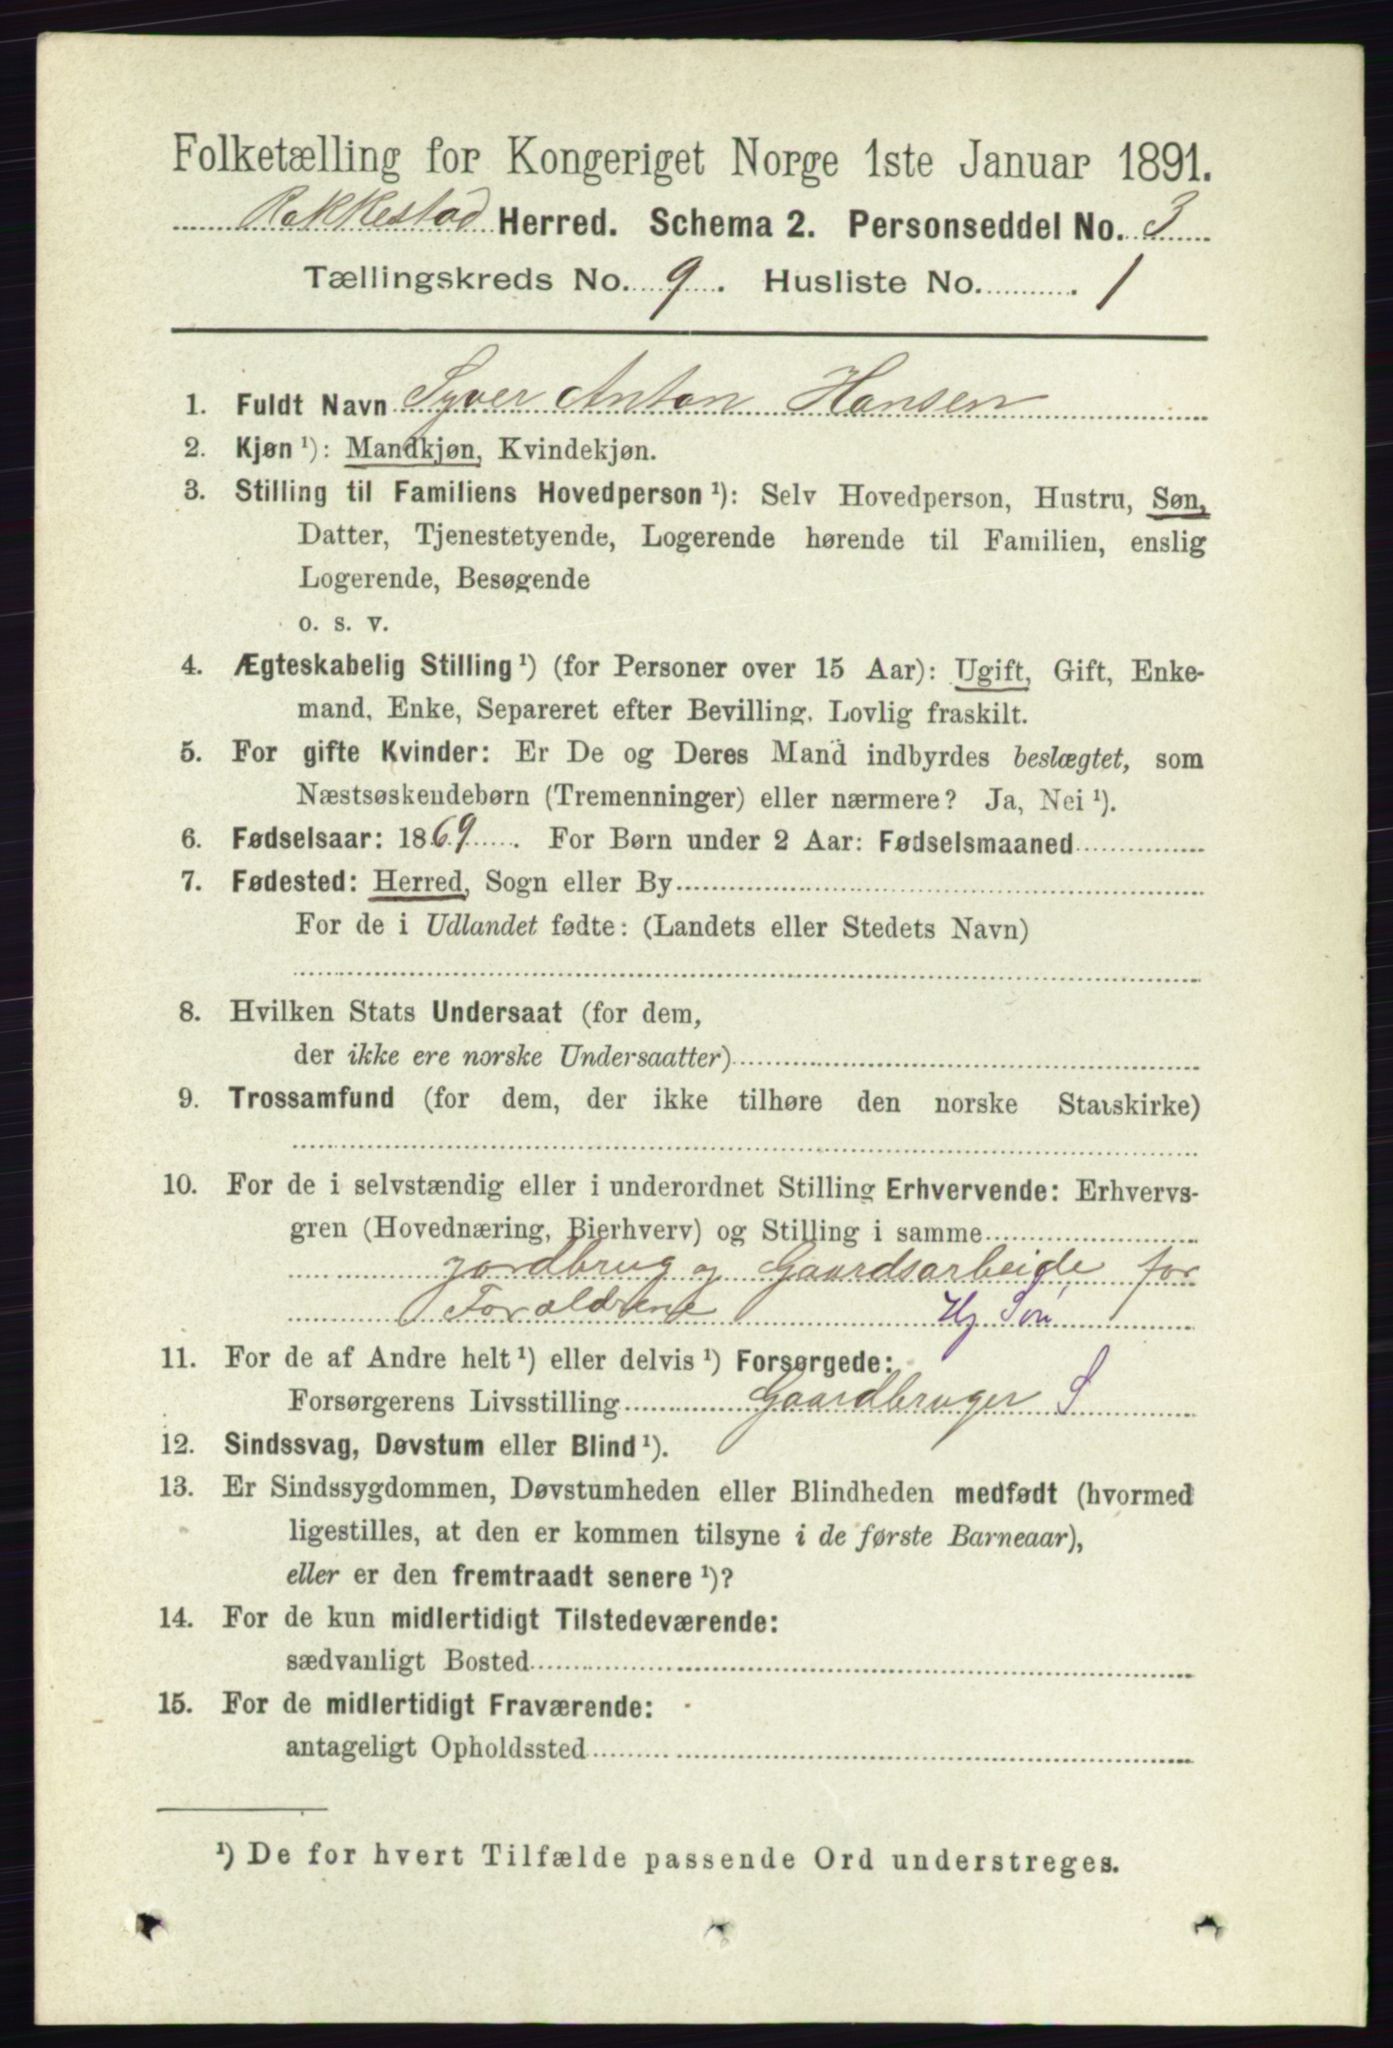 Folketælling for Kongeriget Norge 1ste Januar 1891.
Rakkestad Herred. Schema 2. Personseddel No. 3
Tællingskreds No. 9. Husliste No. 1
1. Fuldt Navn Syver Anton Hansen
2. Kjøn ¹): Mandkjøn, Kvindekjøn.
3. Stilling til Familiens Hovedperson ¹): Selv Hovedperson, Hustru, Søn,
Datter, Tjenestetyende, Logerende hørende til Familien, enslig
Logerende, Besøgende
o. s. v.
4. Ægteskabelig Stilling ¹) (for Personer over 15 Aar): Ugift, Gift, Enke-
mand, Enke, Separeret efter Bevilling. Lovlig fraskilt.
5. For gifte Kvinder: Er De og Deres Mand indbyrdes beslægtet, som
Næstsøskendebørn (Tremenninger) eller nærmere? Ja, Nei ¹).
6. Fødselsaar: 1869. For Børn under 2 Aar: Fødselsmaaned
7. Fødested: Herred, Sogn eller By
For de i Udlandet fødte: (Landets eller Stedets Navn)
8. Hvilken Stats Undersaat (for dem,
der ikke ere norske Undersaatter)
9. Trossamfund (for dem, der ikke tilhøre den norske Statskirke)
10. For de i selvstændig eller i underordnet Stilling Erhvervende: Erhvervs-
gren (Hovednæring, Bierhverv) og Stilling i samme
jordbrug og Gaardsarbeide for
Forældrene Hj Søn
11. For de af Andre helt ¹) eller delvis ¹) Forsørgede:
Forsørgerens Livsstilling Gaardbruger S
12. Sindssvag, Døvstum eller Blind ¹).
13. Er Sindssygdommen, Døvstumheden eller Blindheden medfødt (hvormed
ligestilles, at den er kommen tilsyne i de første Barneaar),
eller er den fremtraadt senere ¹)?
14. For de kun midlertidigt Tilstedeværende:
sædvanligt Bosted
15. For de midlertidigt Fraværende:
antageligt Opholdssted
¹) De for hvert Tilfælde passende Ord understreges.